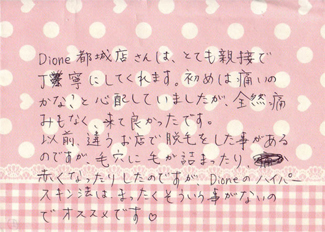 Dione都城店さんは、とても親接で
丁寧にしてくれます。初めは痛いの
かな?と心配していましたが、全然痛
みもなく、来て良かったです。
以前、違うお店で脱毛をした事がある
のですが、毛穴に毛が詰まったり、
赤くなったりしたのですがDioneのハイパー
スキン法は、まったくそういう事がないの
でオススメです♡